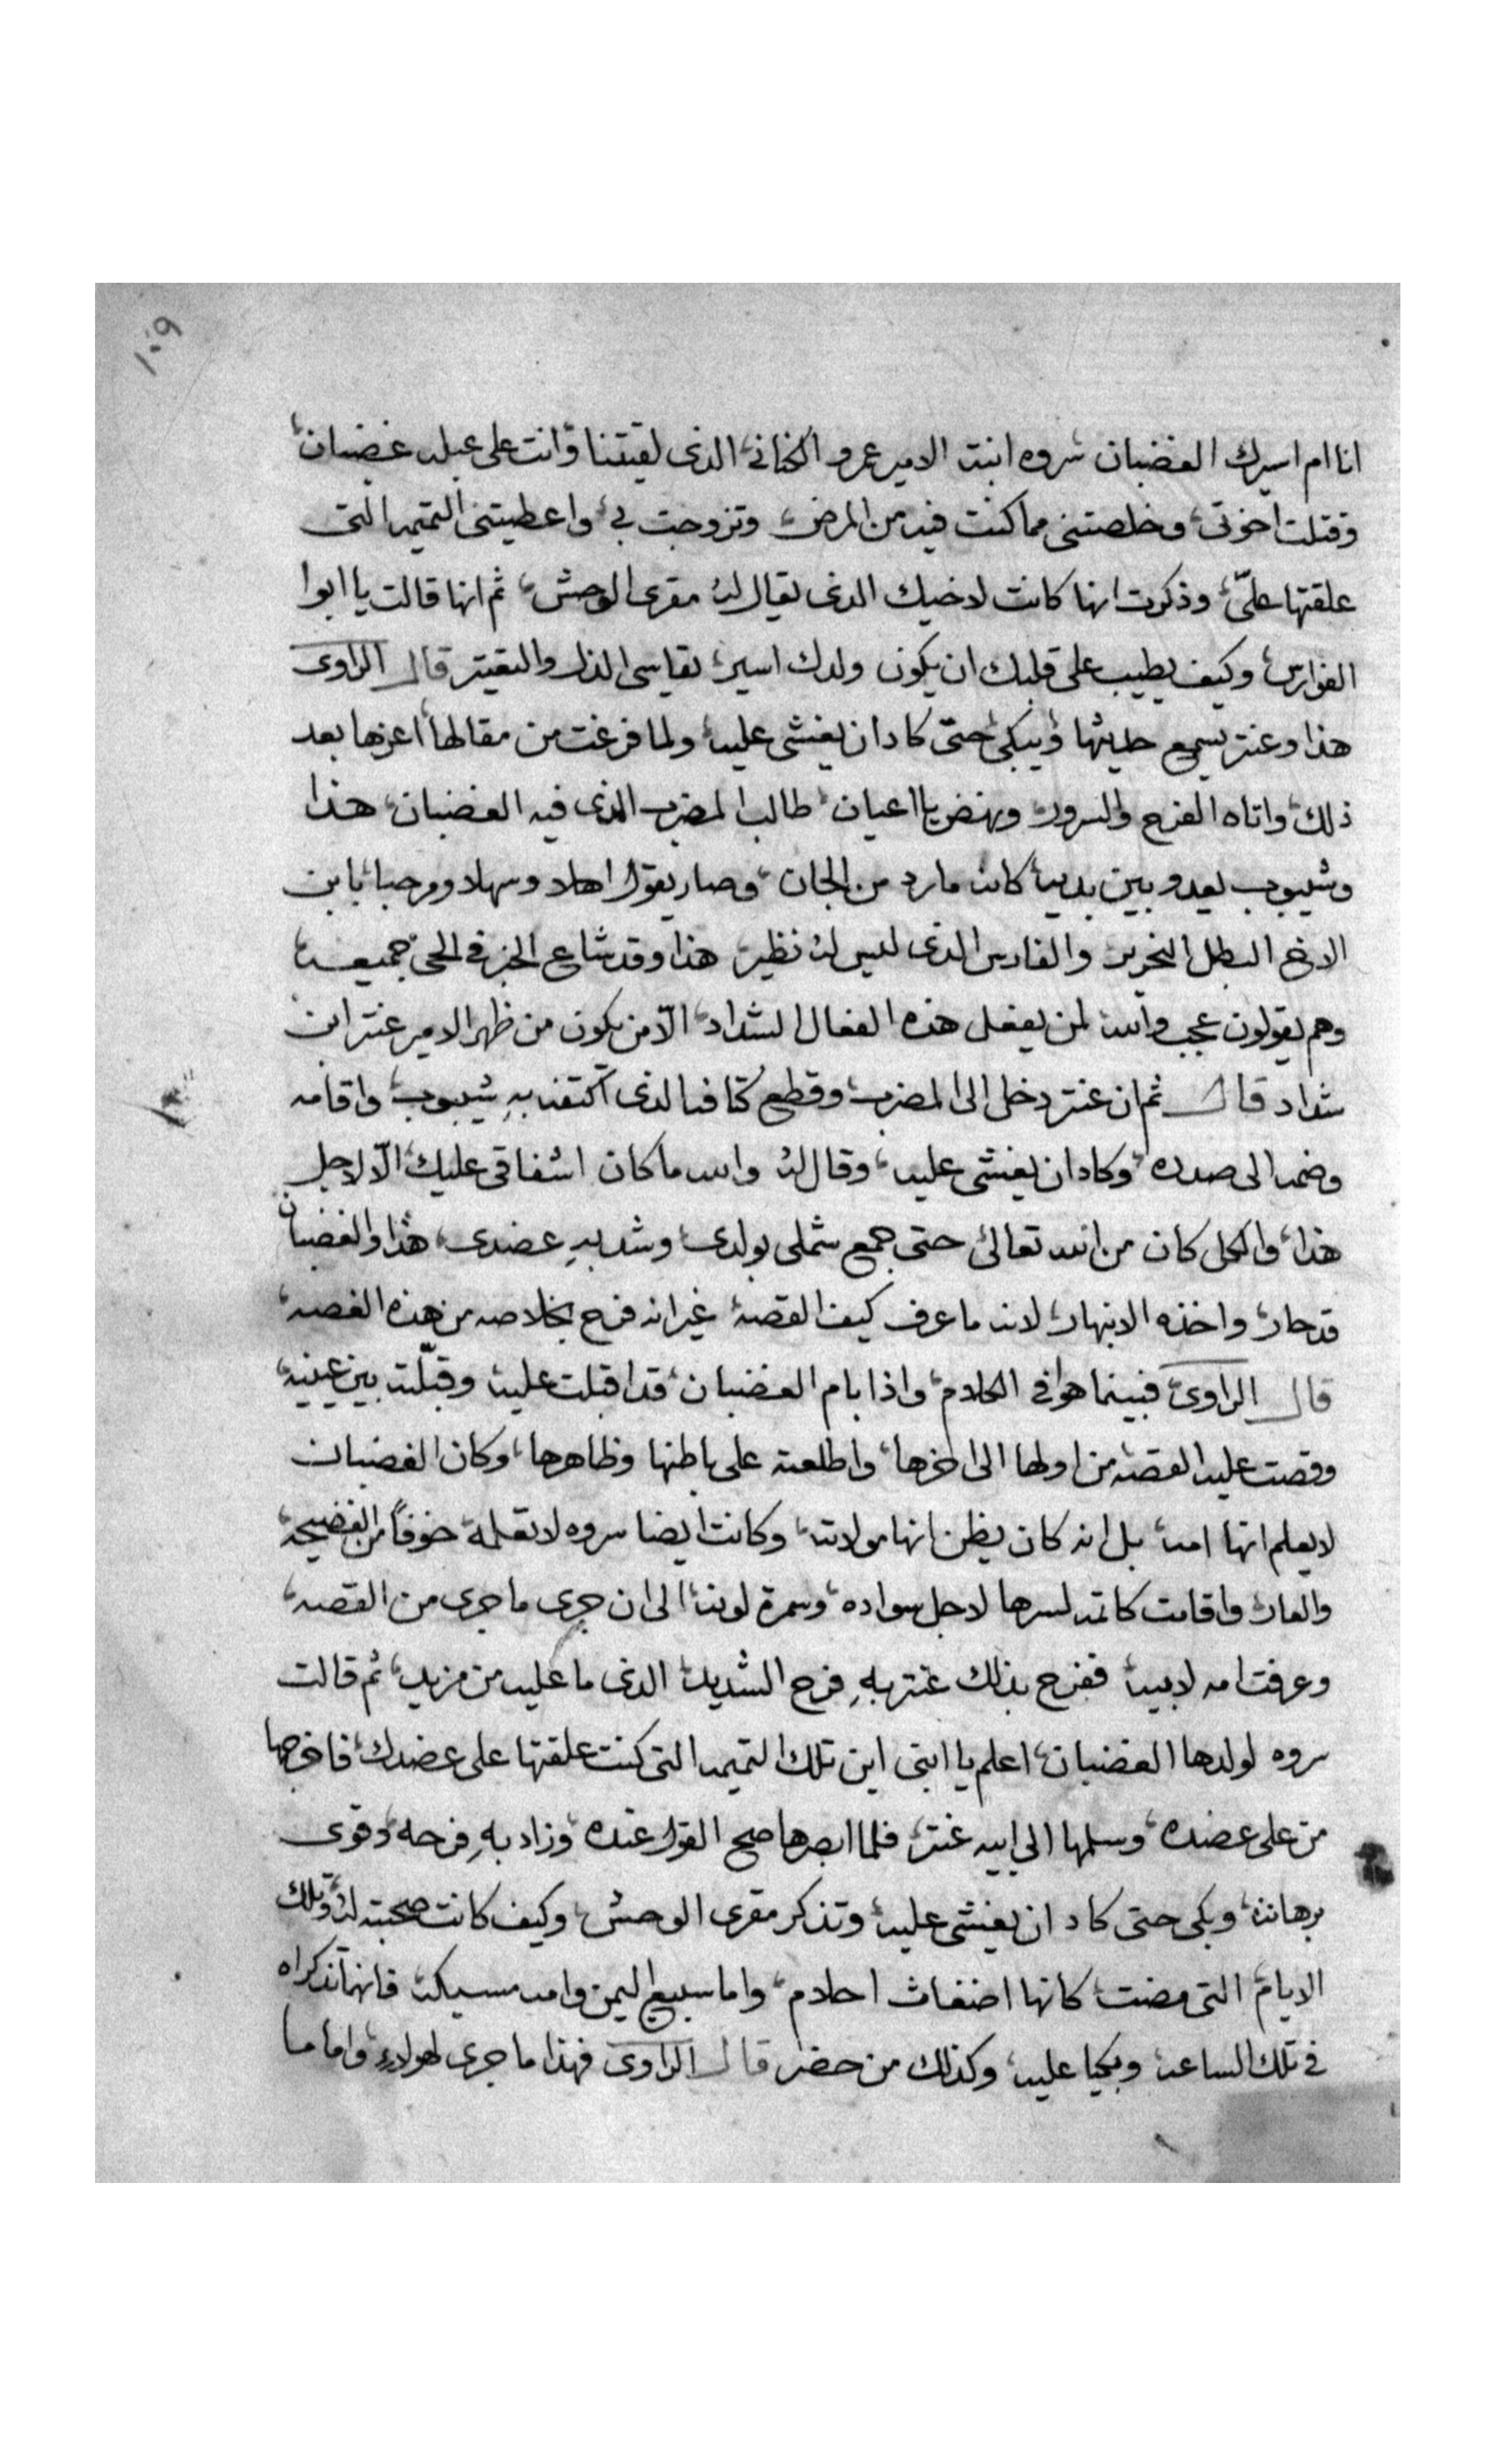 ١٠٩
انا ام اسيرك الغضبان سروه ابنت الامير عمرو الكناني الذى لقيتنا وانت على عبله غضبان
وقتلت اخوتى وخلصتنى مما كنت فيه من المرض وتزوجت بى واعطيتنى التميمه التى
علقتها علىّ وذكرت انها كانت لاخيك الذى يقال له مقرى الوحش ثم انها قالت يا ابوا
الفوارس وكيف يطيب على قلبك ان يكون ولدك اسير يقاسى الذل والتقتير قال الراوى
هذا وعنتر يسمع حديثها ويبكى حتى كاد ان يغشى عليه ولما فرغت من مقالها اعزها بعد
ذلك واتاه الفرح والسرور ونهض يا اعيان طالب المضرب الذى فيه الغضبان هذا
وشيبوب يعدو بين يديه كانه مارد من الجان وصار يقول اهلا وسهلا ومرحبا يابن
الاخ البطل النحرير والفارس الذى ليس له نظير هذا وقد شاع الخبر فى الحى جميعه
وهم يقولون عجب والله لمن يفعل هذه الفعال الشداد الّا من يكون من ظهر الامير عنتر ابن
شداد قال ثم ان عنتر دخل الى المضرب وقطع كتافه الذى اكتفه بهِ شيبوب واقامه
وضمه الى صدره وكاد ان يغشى عليه وقال له والله ما كان اشفاقى عليك الّا لاجل
هذا والكل كان من الله تعالى حتى جمع شملى بولدى وشد بهِ عضدى هذا والغضبان
قد حار واخذه الانبهار لانه ما عرف كيف القصه غير انه فرح بخلاصه من هذه الغصه
قال الراوى فبينما هو فى الكلام واذا بام الغضبان قد اقبلت عليه وقبّلته بين عينيه
وقصت عليه القصه من اولها الى اخرها واطلعته على باطنها وظاهرها وكان الغضبان
لا يعلم انها امه بل انه كان يظن انها مولاته وكانت ايضا سروه لا تعلمه خوفاً من الفضيحه
والعار واقامت كاتمه لسرها لاجل سواده وسمرة لونه الى ان جرى ما جرى من القصه
وعرفت امه لابيه ففرح بذلك عنتر بهِ فرح الشديد الذى ما عليه من مزيد ثم قالت
سروه لولدها الغضبان اعلم يا ابنى اين تلك التميمه التى كنت علقتها على عضدك فاخرجها
من على عضده وسلمها الى ابيه عنتر فلما ابصرها صح القول عنده وزاد بهِ فرحه وقوى
برهانه وبكى حتى كاد ان يغشى عليه وتذكر مقرى الوحش وكيف كانت صحبته له وتلك
الايام التى مضت كانها اضغاث احلام واما سبيع اليمن وامه مسيكه فانهما تذكراه
فى تلك الساعه وبكيا عليه وكذلك من حضر قال الراوى فهذا ما جرى لهولاء واما ما